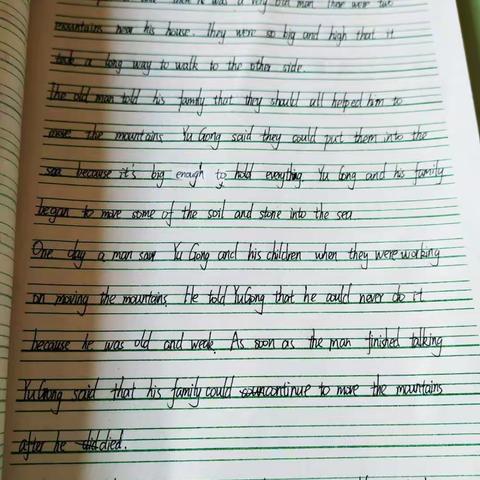 he was a very old man. There were two
mountains near his house. They were so big and high that it
took a long way to walk to the other side.
The old man told his family that they should all helped him to
move the mountains. Yu Gong said they could put them into the
sea because it's big enough to hold everything. Yu Gong and his family
began to move some of the soil and stone into the sea.
One day a man saw Yu Gong and his children when they were working
on moving the mountains. He told YuGong that he could never do it
because he was old and weak. As soon as the man finished talking
YuGong said that his family could continue to move the mountains
after he died.